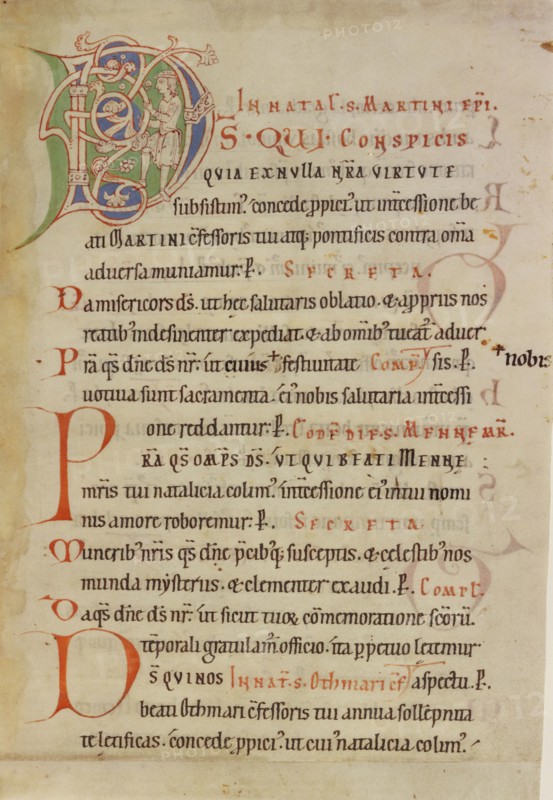 In natał. s. Martini epi.
DS. QUI. Conspicis
quia ex nulla nr̄a virtute
subsistim᾽. concede ppiciꝰ. ut int̄cessione be
ati Martini c̄fessoris tui atq; pontificis contra om̄a
adversa muniamur: P̱. Secreta.
Da misericors ds̄. ut hec salutaris oblatio. & a ppriis nos
reatib; indesinenter expediat. & ab om̄ib; tueat᾽ adver
Pra q̄s dn̄e ds̄ nr̄: ut cuius + festivitate Comp̄ł. sis. P̱. + nobis
votiva sunt sacramenta. ei᾽ nobis salutaria int̄cessi
one reddantur: P̱. Cod̄ē die. s. Menne m̄r.
Pr̄a q̄s omp̄s ds̄. ut qui beati Menne
mr̄is tui natalicia colim᾽. int̄cessione ei᾽ in tui nomi
nis amore roboremur: P̱. Secreta.
Munerib; nr̄is q̄s dn̄e p̄cib; q; susceptis. & celestib; nos
munda mysteriis. & clementer exaudi. P̱. Compł.
Da q̄s dn̄e ds̄ nr̄: ut sicut tuoꝝ c̄ōmemoratione sc̄ōrū.
tēporali gratulam̄ officio. ita perpetuo letemur
DS̄ qui nos In nat̄. s. Othmari c̄f. aspectu. P̱.
beati Othmari c̄fessoris tui annua sollēpnita
te letificas. concede ppiciꝰ. ut cui᾽ natalicia colim᾽.